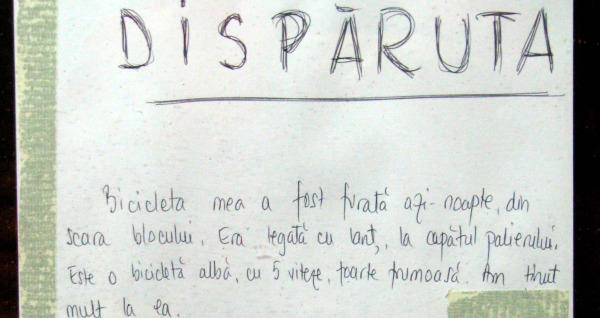 DISPĂRUTA
Bicicleta mea a fost furată azi-noapte, din
scara blocului. Era legată cu lanț, la capătul palierului.
Este o bicicletă albă, cu 5 viteze, foarte frumoasă. Am ținut
mult la ea.